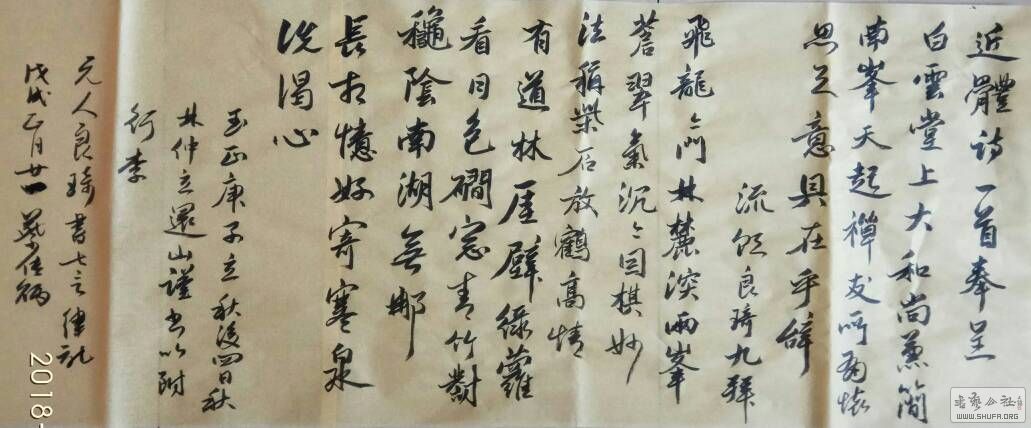 近體詩一首奉呈
白雲堂上大和尚兼簡
南峯天起禪友所有懷
思之意具在乎辞
流住良琦九拜
飛龍之門林麓深兩峯
蒼翠氣沉之因棋妙
法稱柴石放鶴高情
有道林厓壁綠蘿
看月色磵窓青竹對
穐陰南湖無那
長相憶好寄寒泉
洗渴心
至正庚子立秋後四日秋
林仲立還山謹書以附
行李
元人良琦書七言律詩
戊戌正月廿一
2018-
WWW.SHUFA.ORG